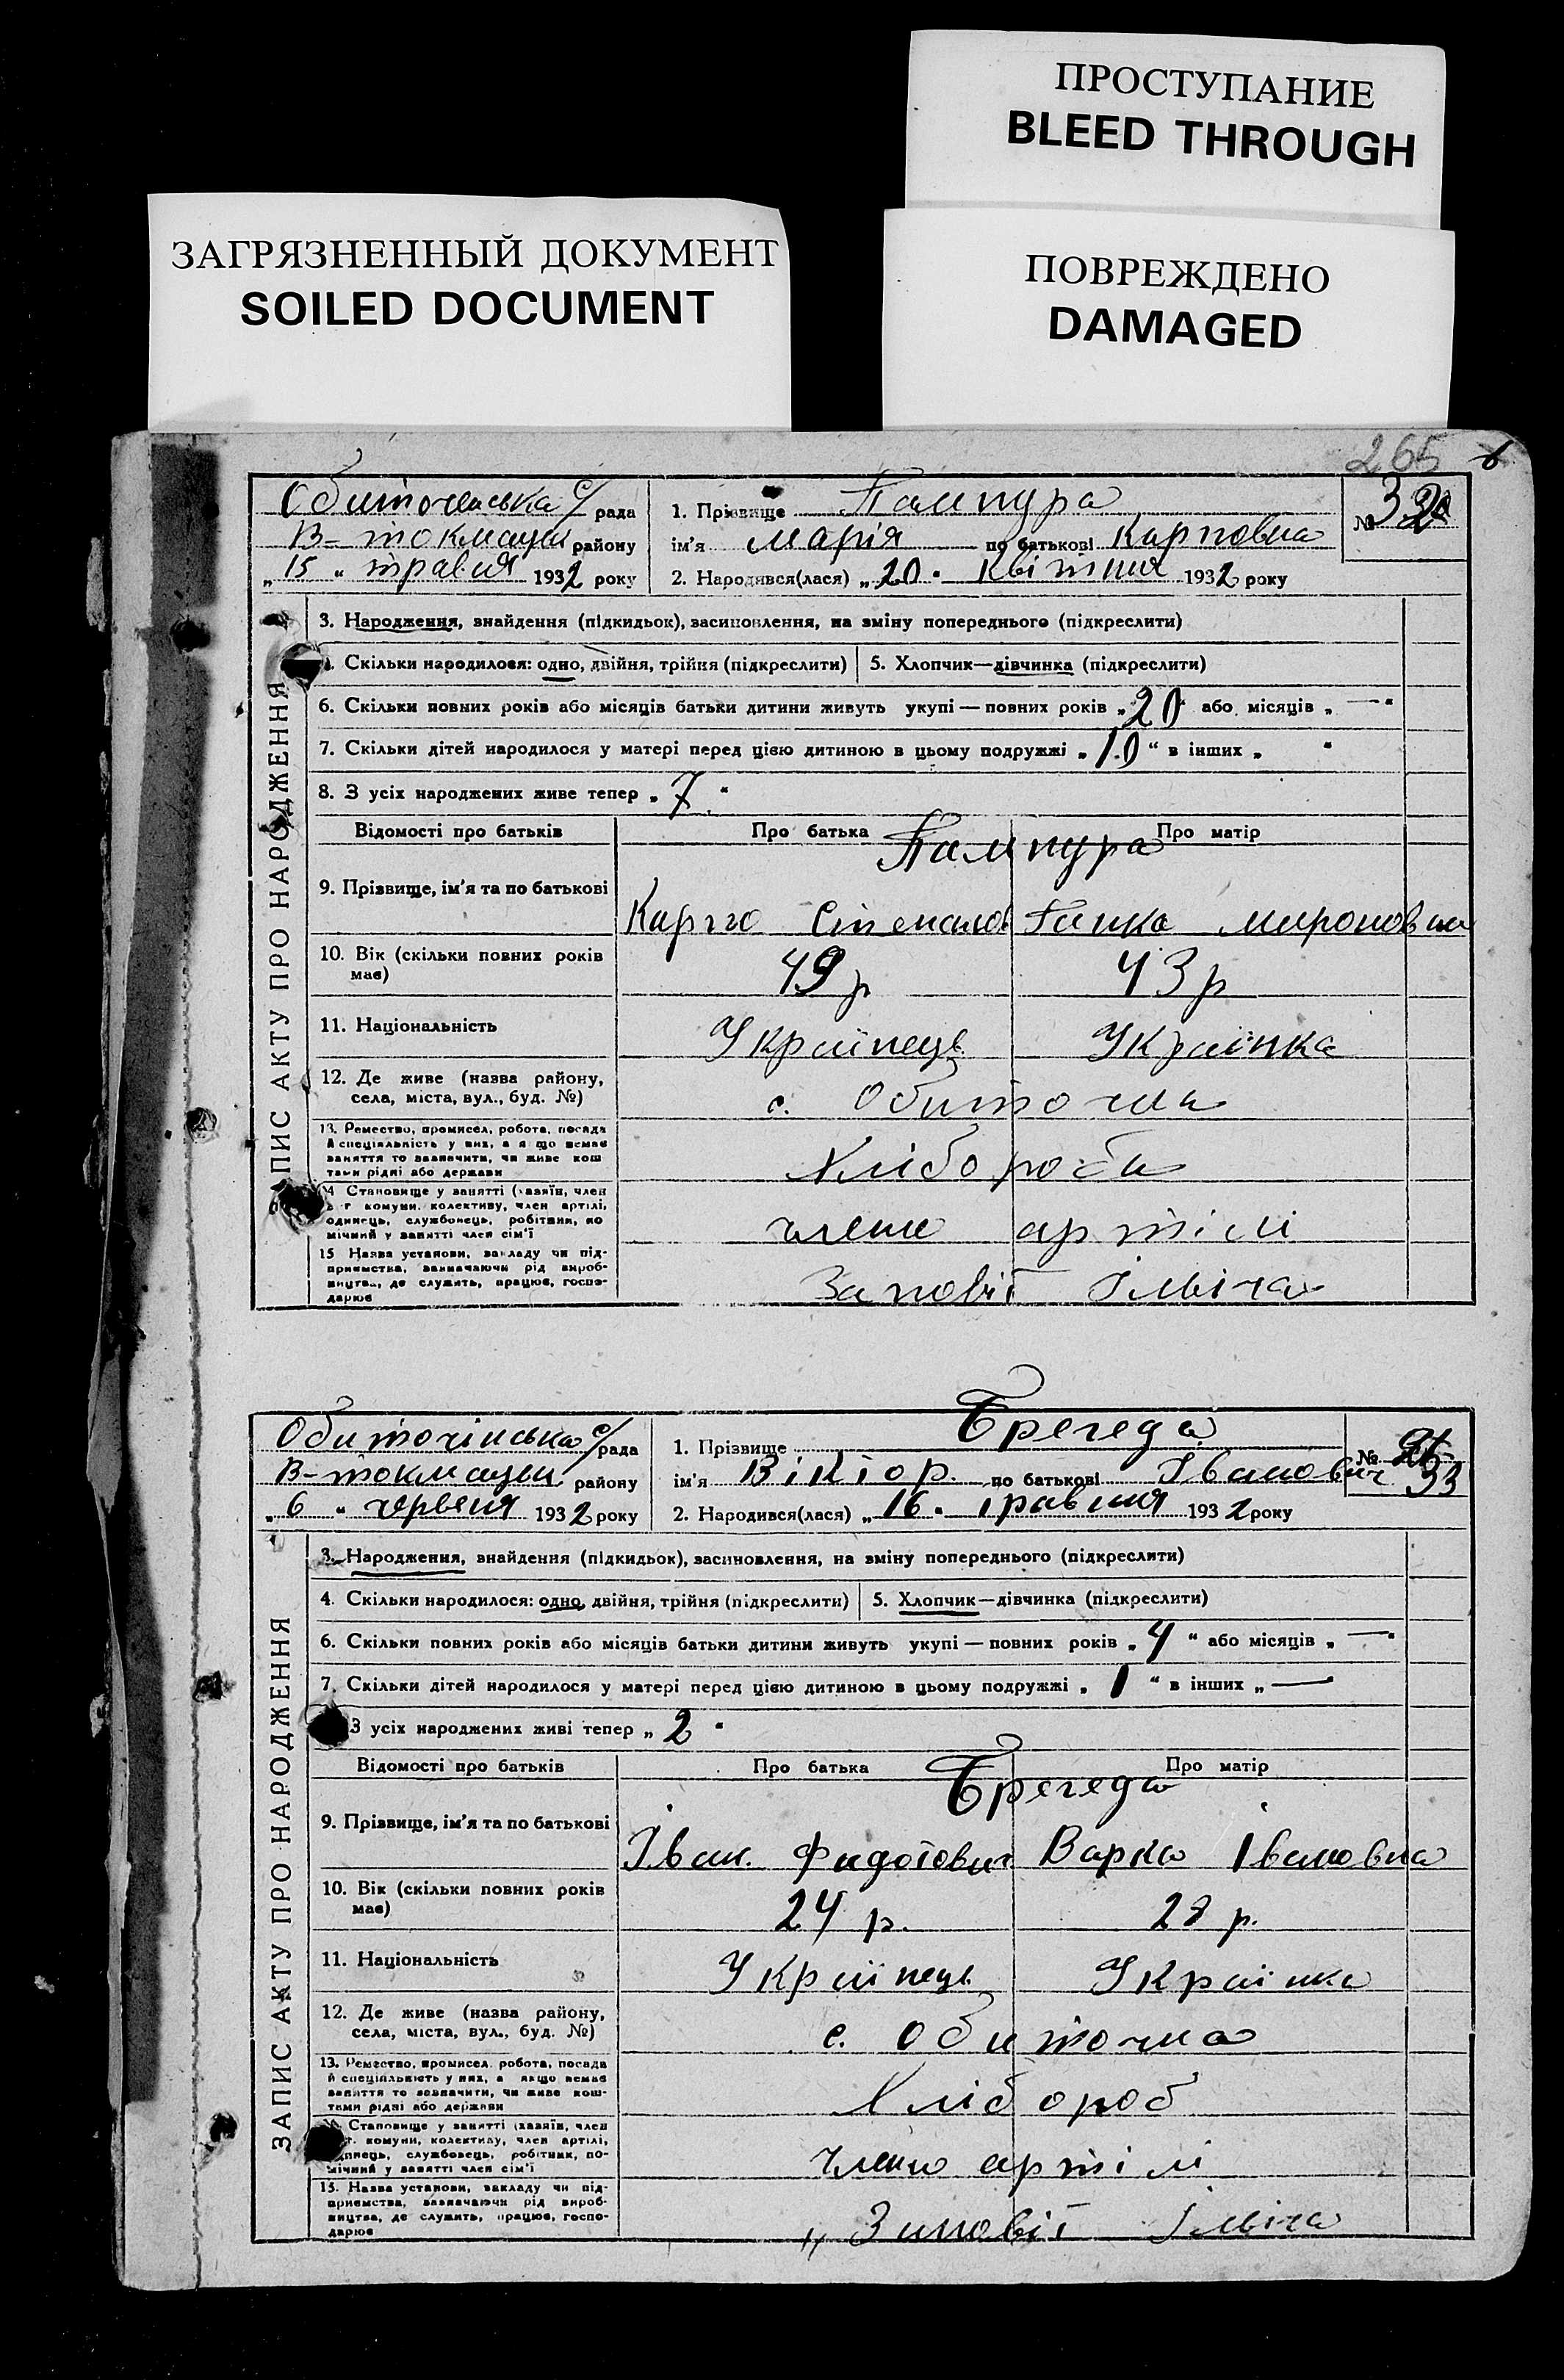 ПРОСТУПАНИЕ
BLEED THROUGH
ЗАГРЯЗНЕННЫЙ ДОКУМЕНТ
SOILED DOCUMENT
ПОВРЕЖДЕНО
DAMAGED
265
Обиточенська с/рада
В-токмацьк району
„15“ травня 1932 року
1. Прізвище Пампура
ім'я Марія по батькові Карповна
2. Народився(лася) „20“ Квітня 1932 року
№ 32
ЗАПИС АКТУ ПРО НАРОДЖЕННЯ
3. Народження, знайдення (підкидьок), засиновлення, на зміну попереднього (підкреслити)
4. Скільки народилося: одно, двійня, трійня (підкреслити)
5. Хлопчик—дівчинка (підкреслити)
6. Скільки повних років або місяців батьки дитини живуть укупі — повних років „20“ або місяців „—“
7. Скільки дітей народилося у матері перед цією дитиною в цьому подружжі „10“ в інших „ “
8. З усіх народжених живе тепер „7“
Відомості про батьків
Про батька
Про матір
Пампура
9. Прізвище, ім'я та по батькові
Карпо Степанов
Ганка Мироновна
10. Вік (скільки повних років має)
49 р
43 р
11. Національність
Українець
Українка
12. Де живе (назва району, села, міста, вул., буд. №)
с. Обиточна
13. Ремество, промисел, робота, посада й спеціяльність у них, а якщо немає заняття то зазначити, чи живе коштами рідні або держави
Хлібороби
14 Становище у занятті (хазяїн, член с.-г комуни, колективу, член артілі, одинець, службовець, робітник, помічний у занятті член сім'ї
члени артілі
15 Назва установи, закладу чи підприємства, зазначаючи рід виробництва, де служить, працює, господарює
Заповіт Ілліча
Обиточінська с/рада
В-токмацьк району
„6“ червня 1932 року
1. Прізвище Брегеда
ім'я Віктор по батькові Іванович
2. Народився(лася) „16“ травня 1932 року
№ 33
ЗАПИС АКТУ ПРО НАРОДЖЕННЯ
3. Народження, знайдення (підкидьок), засиновлення, на зміну попереднього (підкреслити)
4. Скільки народилося: одно, двійня, трійня (підкреслити)
5. Хлопчик—дівчинка (підкреслити)
6. Скільки повних років або місяців батьки дитини живуть укупі — повних років „4“ або місяців „—“
7. Скільки дітей народилося у матері перед цією дитиною в цьому подружжі „1“ в інших „—
З усіх народжених живі тепер „2“
Відомості про батьків
Про батька
Про матір
Брегеда
9. Прізвище, ім'я та по батькові
Іван Федотович
Варка Івановна
10. Вік (скільки повних років має)
24 р.
28 р.
11. Національність
Українець
Українка
12. Де живе (назва району, села, міста, вул., буд. №)
с. Обиточна
13. Ремество, промисел, робота, посада й спеціяльність у них, а якщо немає заняття то зазначити, чи живе коштами рідні або держави
Хлібороб
Становище у занятті (хазяїн, член с.-г. комуни, колективу, член артілі, одинець, службовець, робітник, помічний у занятті член сім'ї
члени артілі
15. Назва установи, закладу чи підприємства, зазначаючи рід виробництва, де служить, працює, господарює
„Заповіт Ілліча